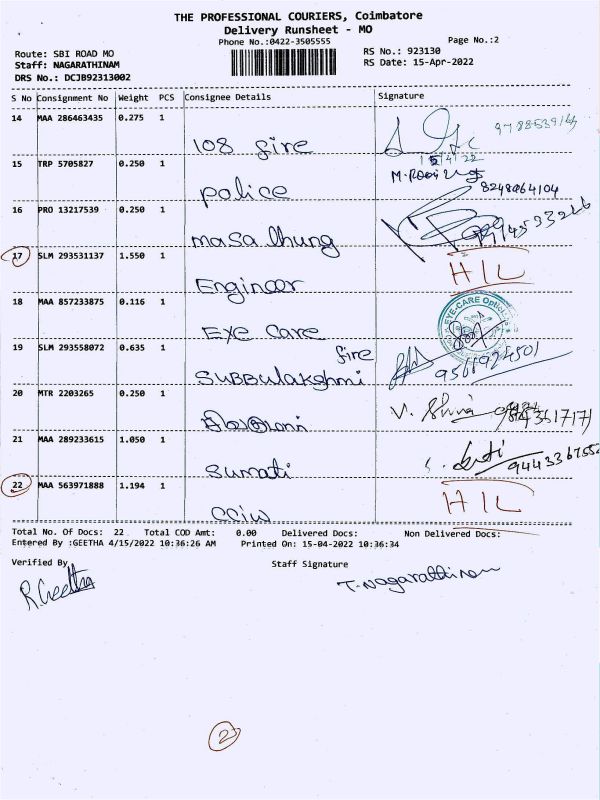 THE PROFESSIONAL COURIERS, Coimbatore
Delivery Runsheet - MO
Phone No.:0422-3505555
Page No.:2
Route: SBI ROAD MO
RS No.: 923130
Staff: NAGARATHINAM
RS Date: 15-Apr-2022
DRS No.: DCJB92313002
S No Consignment No Weight PCS Consignee Details Signature
14 MAA 286463435 0.275 1
108 fire
15/4/22
15 TRP 5705827 0.250 1
police
8248064104
16 PRO 13217539 0.250 1
masa lhung
17 SLM 293531137 1.550 1
Engineer
H/L
18 MAA 857233875 0.116 1
EYE-CARE
Exe Care
19 SLM 293558072 0.635 1
fire
Subbulakshmi
9561924501
20 MTR 2203265 0.250 1
V. Shiva
21 MAA 289233615 1.050 1
Sumati
9443367552
22 MAA 563971888 1.194 1
CCIW
H/L
Total No. Of Docs: 22 Total COD Amt: 0.00 Delivered Docs: Non Delivered Docs:
Entered By :GEETHA 4/15/2022 10:36:26 AM Printed On: 15-04-2022 10:36:34
Verified By
Staff Signature
R.Geetha
T. Nagarathinam
2